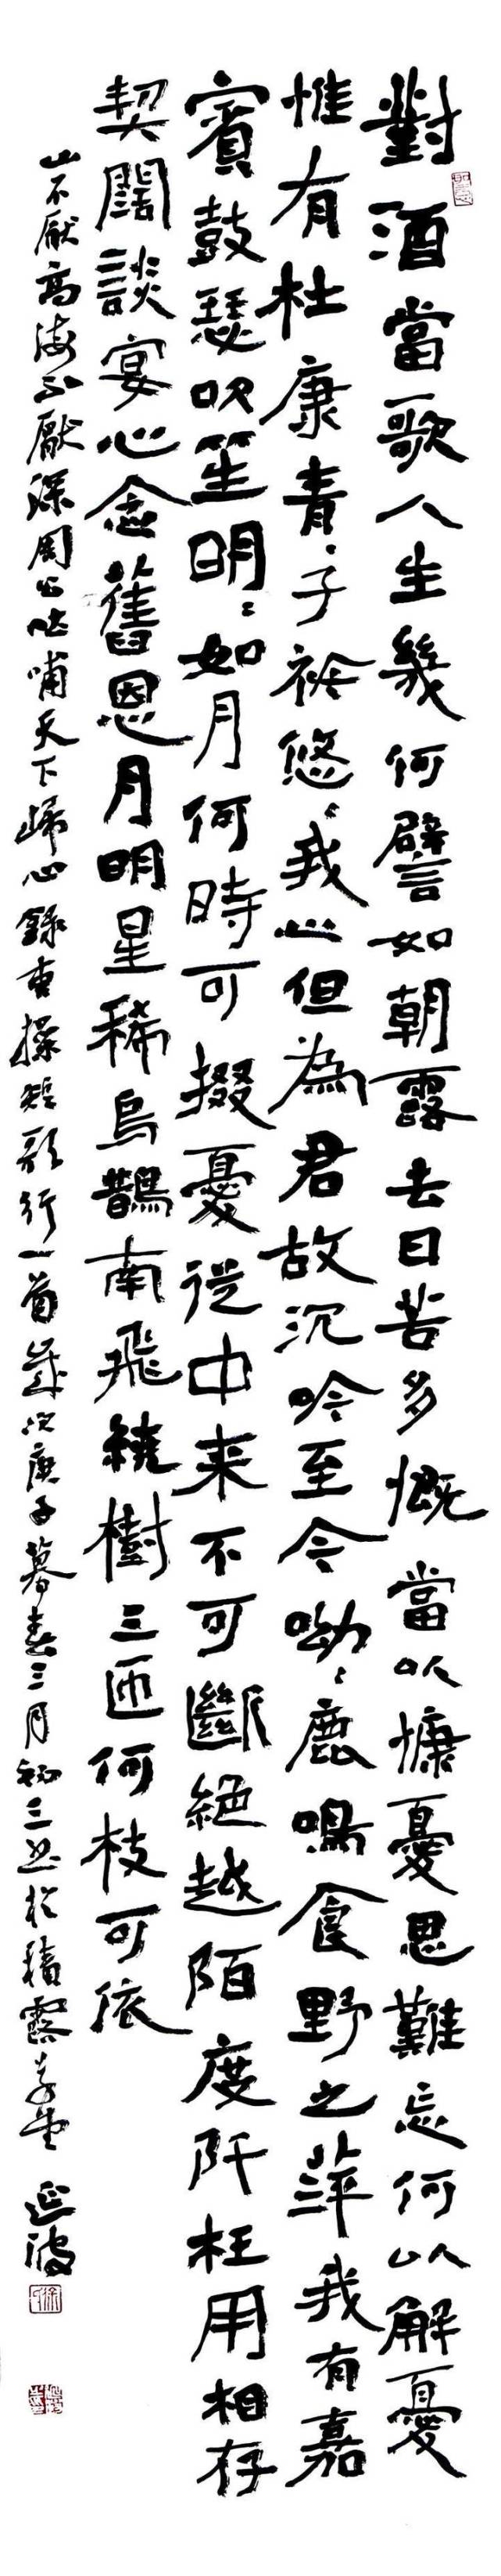 對酒當歌人生幾何譬如朝露去日苦多慨當以慷憂思難忘何以解憂
惟有杜康青〻子衿悠〻我心但為君故沉吟至今呦〻鹿鳴食野之萍我有嘉
賓鼓瑟吹笙明〻如月何時可掇憂從中来不可斷絕越陌度阡枉用相存
契闊談宴心念舊恩月明星稀烏鵲南飛繞樹三匝何枝可依
山不厭高海不厭深周公吐哺天下歸心錄曹操短歌行一首歲次庚子暮春三月初三書於積露草堂 延波